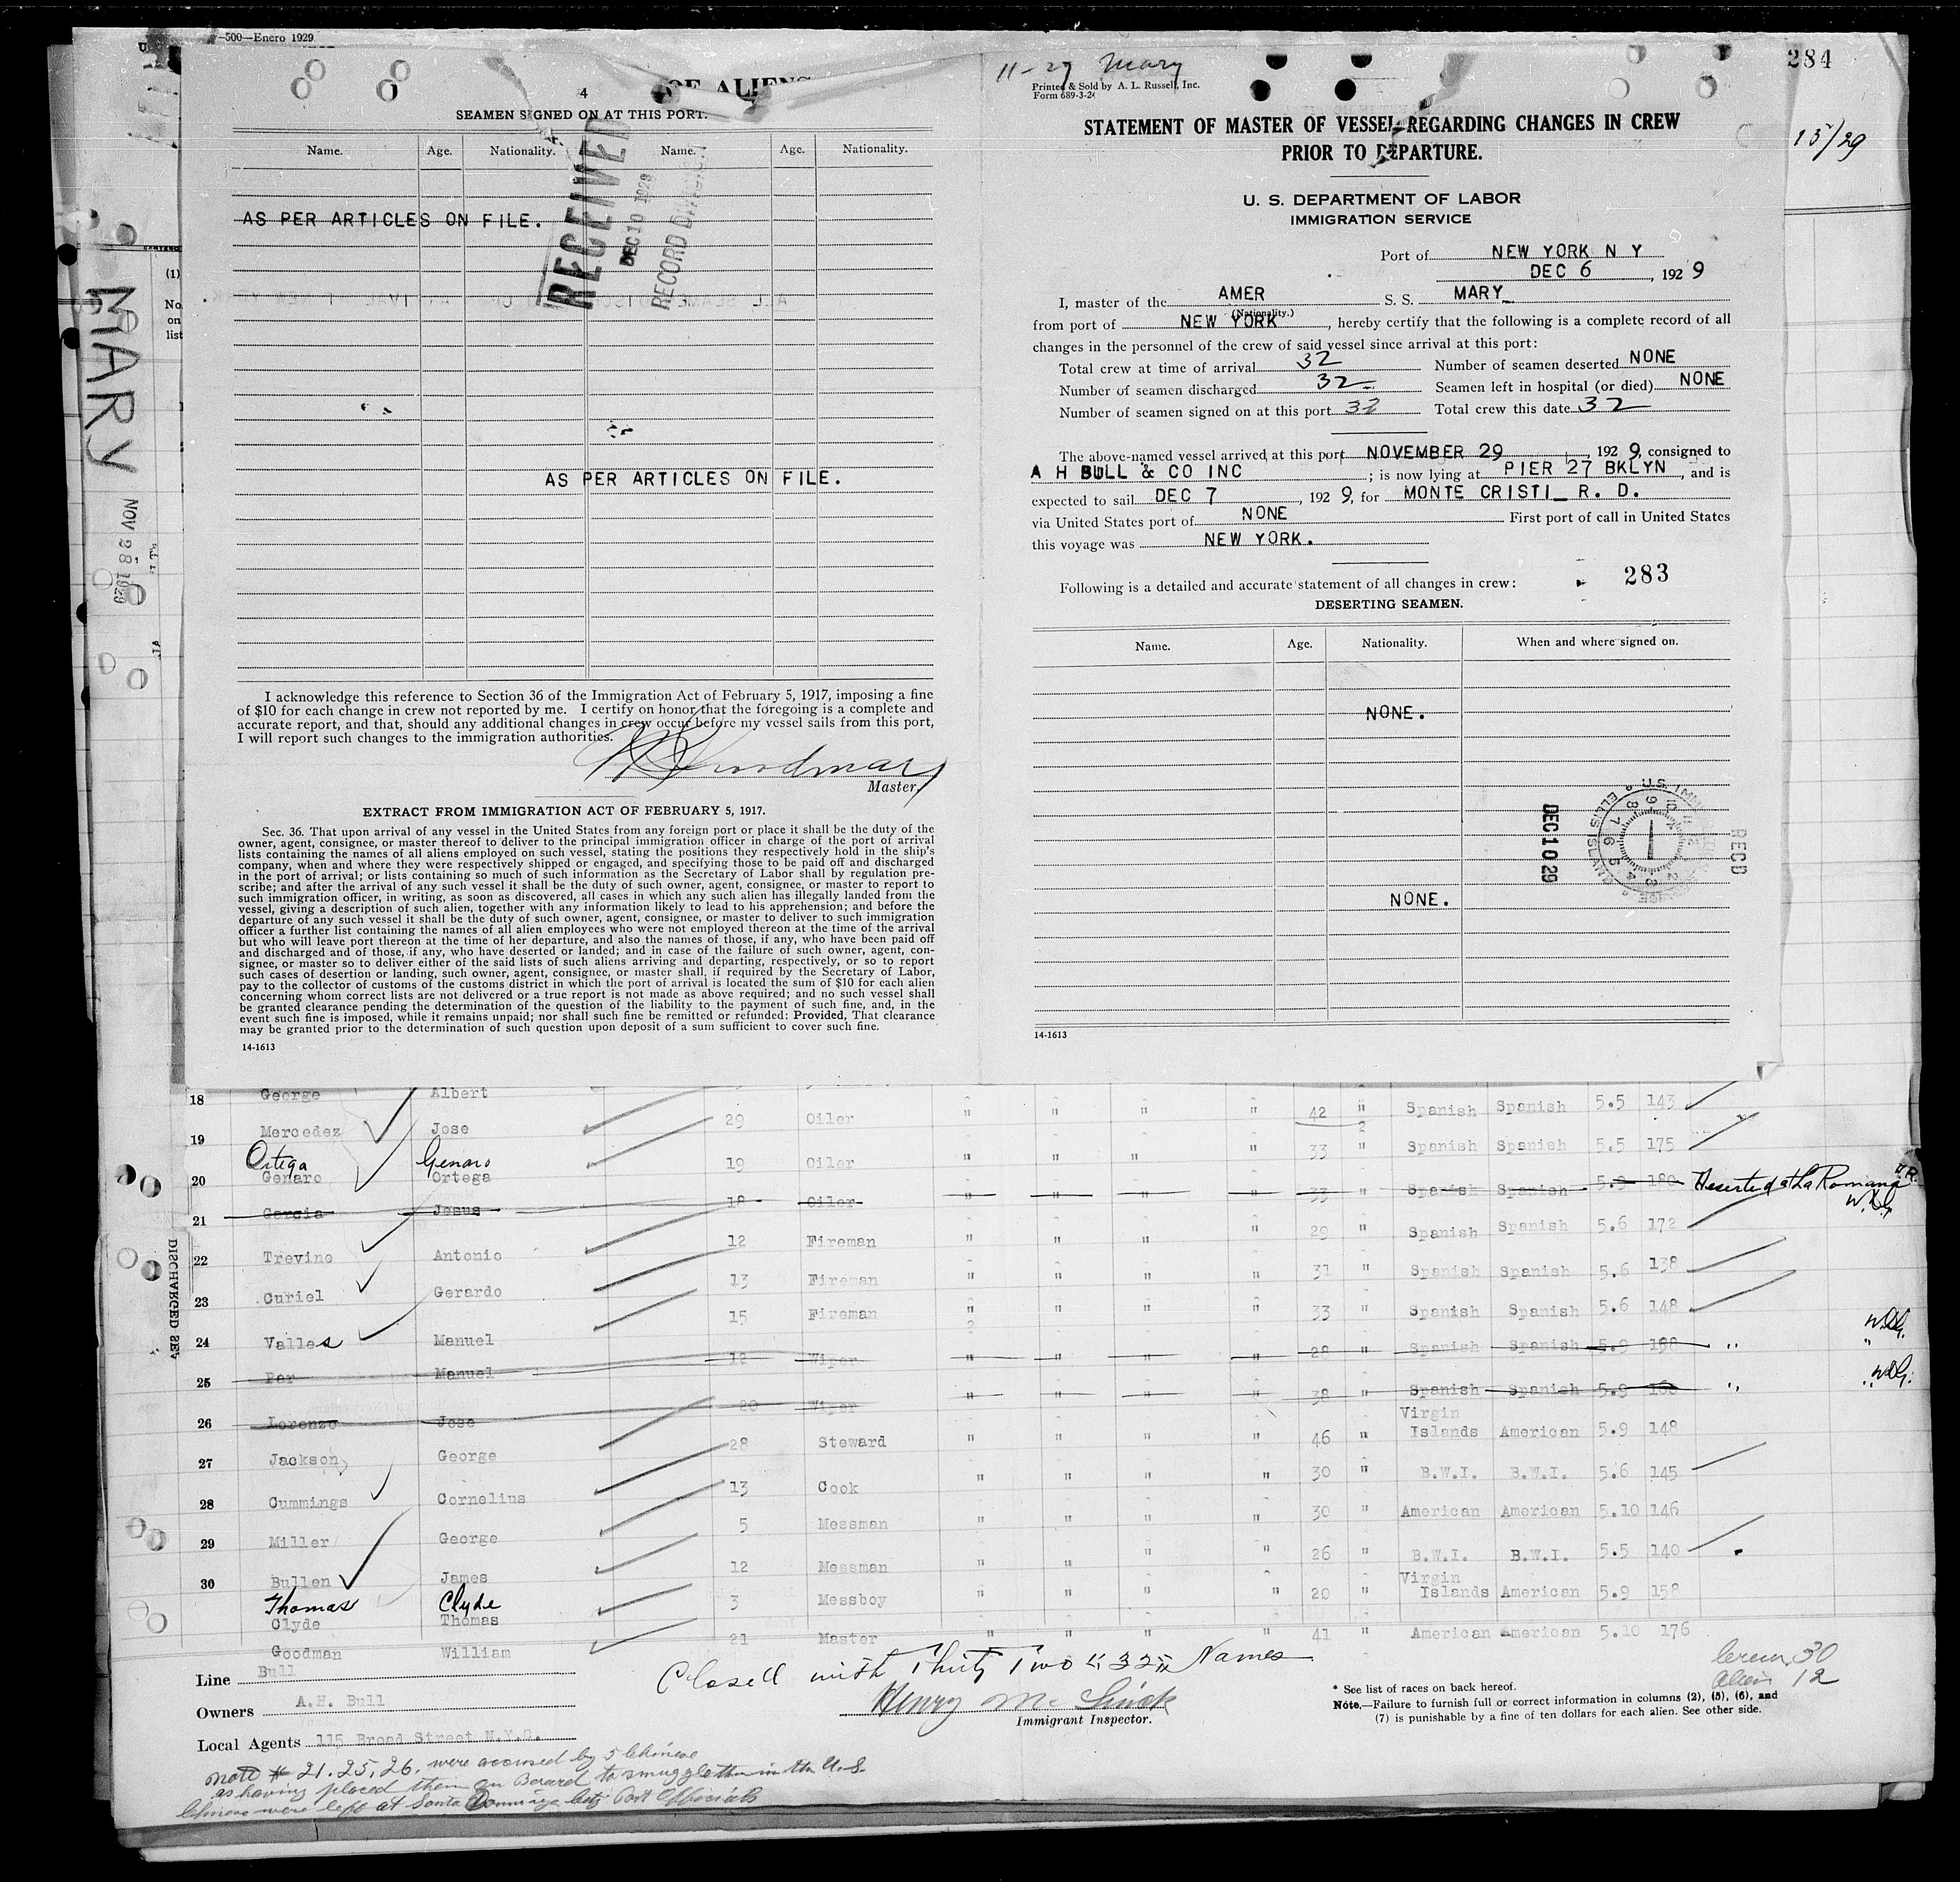 -500—Enero 1929
4
OF ALIENS
SEAMEN SIGNED ON AT THIS PORT.
Name. Age. Nationality. Name. Age. Nationality.
RECEIVED
DEC 10 1929
AS PER ARTICLES ON FILE.
AS PER ARTICLES ON FILE.
I acknowledge this reference to Section 36 of the Immigration Act of February 5, 1917, imposing a fine
of $10 for each change in crew not reported by me. I certify on honor that the foregoing is a complete and
accurate report, and that, should any additional changes in crew occur before my vessel sails from this port,
I will report such changes to the immigration authorities.
Master.
EXTRACT FROM IMMIGRATION ACT OF FEBRUARY 5, 1917.
Sec. 36. That upon arrival of any vessel in the United States from any foreign port or place it shall be the duty of the
owner, agent, consignee, or master thereof to deliver to the principal immigration officer in charge of the port of arrival
lists containing the names of all aliens employed on such vessel, stating the positions they respectively hold in the ship's
company, when and where they were respectively shipped or engaged, and specifying those to be paid off and discharged
in the port of arrival; or lists containing so much of such information as the Secretary of Labor shall by regulation pre-
scribe; and after the arrival of any such vessel it shall be the duty of such owner, agent, consignee, or master to report to
such immigration officer, in writing, as soon as discovered, all cases in which any such alien has illegally landed from the
vessel, giving a description of such alien, together with any information likely to lead to his apprehension; and before the
departure of any such vessel it shall be the duty of such owner, agent, consignee, or master to deliver to such immigration
officer a further list containing the names of all alien employees who were not employed thereon at the time of the arrival
but who will leave port thereon at the time of her departure, and also the names of those, if any, who have been paid off
and discharged and of those, if any, who have deserted or landed; and in case of the failure of such owner, agent, con-
signee, or master so to deliver either of the said lists of such aliens arriving and departing, respectively, or so to report
such cases of desertion or landing, such owner, agent, consignee, or master shall, if required by the Secretary of Labor,
pay to the collector of customs of the customs district in which the port of arrival is located the sum of $10 for each alien
concerning whom correct lists are not delivered or a true report is not made as above required; and no such vessel shall
be granted clearance pending the determination of the question of the liability to the payment of such fine, and, in the
event such fine is imposed, while it remains unpaid; nor shall such fine be remitted or refunded: Provided, That clearance
may be granted prior to the determination of such question upon deposit of a sum sufficient to cover such fine.
14-1613
11-29 Mary
Printed & Sold by A. L. Russell, Inc.
Form 689-3-2
284
15/29
STATEMENT OF MASTER OF VESSEL REGARDING CHANGES IN CREW
PRIOR TO DEPARTURE.
U. S. DEPARTMENT OF LABOR
IMMIGRATION SERVICE
Port of NEW YORK N Y
DEC 6, 1929
I, master of the AMER S. S. MARY
(Nationality.)
from port of NEW YORK, hereby certify that the following is a complete record of all
changes in the personnel of the crew of said vessel since arrival at this port:
Total crew at time of arrival 32 Number of seamen deserted NONE
Number of seamen discharged 32 Seamen left in hospital (or died) NONE
Number of seamen signed on at this port 32 Total crew this date 32
The above-named vessel arrived at this port NOVEMBER 29, 1929, consigned to
A H BULL & CO INC; is now lying at PIER 27 BKLYN, and is
expected to sail DEC 7, 1929, for MONTE CRISTI R. D.
via United States port of NONE First port of call in United States
this voyage was NEW YORK.
Following is a detailed and accurate statement of all changes in crew:
283
DESERTING SEAMEN.
Name. Age. Nationality. When and where signed on.
NONE.
NONE.
DEC 10 29
RECD
14-1613
MARY
NOV 28 1929
(1)
No.
on
list
DISCHARGED
18 George Albert
29 Oiler " " " " 42 " Spanish Spanish 5.5 143
19 Mercedez Jose
19 Oiler " " " " 33 " Spanish Spanish 5.5 175
Ortega Genaro
20 Genaro Ortega
18 Oiler " " " " 33 " Spanish Spanish 5.9 180 Deserted at La Romana D.R.
W.D.G.
21 Garcia Jesus
12 Fireman " " " " 29 " Spanish Spanish 5.6 172
22 Trevino Antonio
13 Fireman " " " " 31 " Spanish Spanish 5.6 138
23 Curiel Gerardo
15 Fireman " " " " 33 " Spanish Spanish 5.6 148
24 Valles Manuel
12 Wiper " " " " 28 " Spanish Spanish 5.9 198 "
25 Par Manuel
20 Wiper " " " " 38 " Spanish Spanish 5.9 "
26 Lorenzo Jose
28 Steward " " " " 46 " Virgin Islands American 5.9 148
27 Jackson George
13 Cook " " " " 30 " B.W.I. B.W.I. 5.6 145
28 Cummings Cornelius
5 Messman " " " " 30 " American American 5.10 146
29 Miller George
12 Messman " " " " 26 " B.W.I. B.W.I. 5.5 140
30 Bullen James
3 Messboy " " " " 20 " Virgin Islands American 5.9 158
Thomas Clyde
Clyde Thomas
21 Master " " " " 41 " American American 5.10 176
Goodman William
Line Bull
Owners A.H. Bull
Local Agents 115 Broad Street N.Y.C.
Closed with Thirty Two "32" Names
Immigrant Inspector.
Crew 30
Alien 12
* See list of races on back hereof.
Note.—Failure to furnish full or correct information in columns (2), (5), (6), and
(7) is punishable by a fine of ten dollars for each alien. See other side.
Note # 21, 25, 26, were accused by 5 Chinese
as having placed them on Board to smuggle them in the U.S.
Chinese were left at Santo Domingo City Port Officials